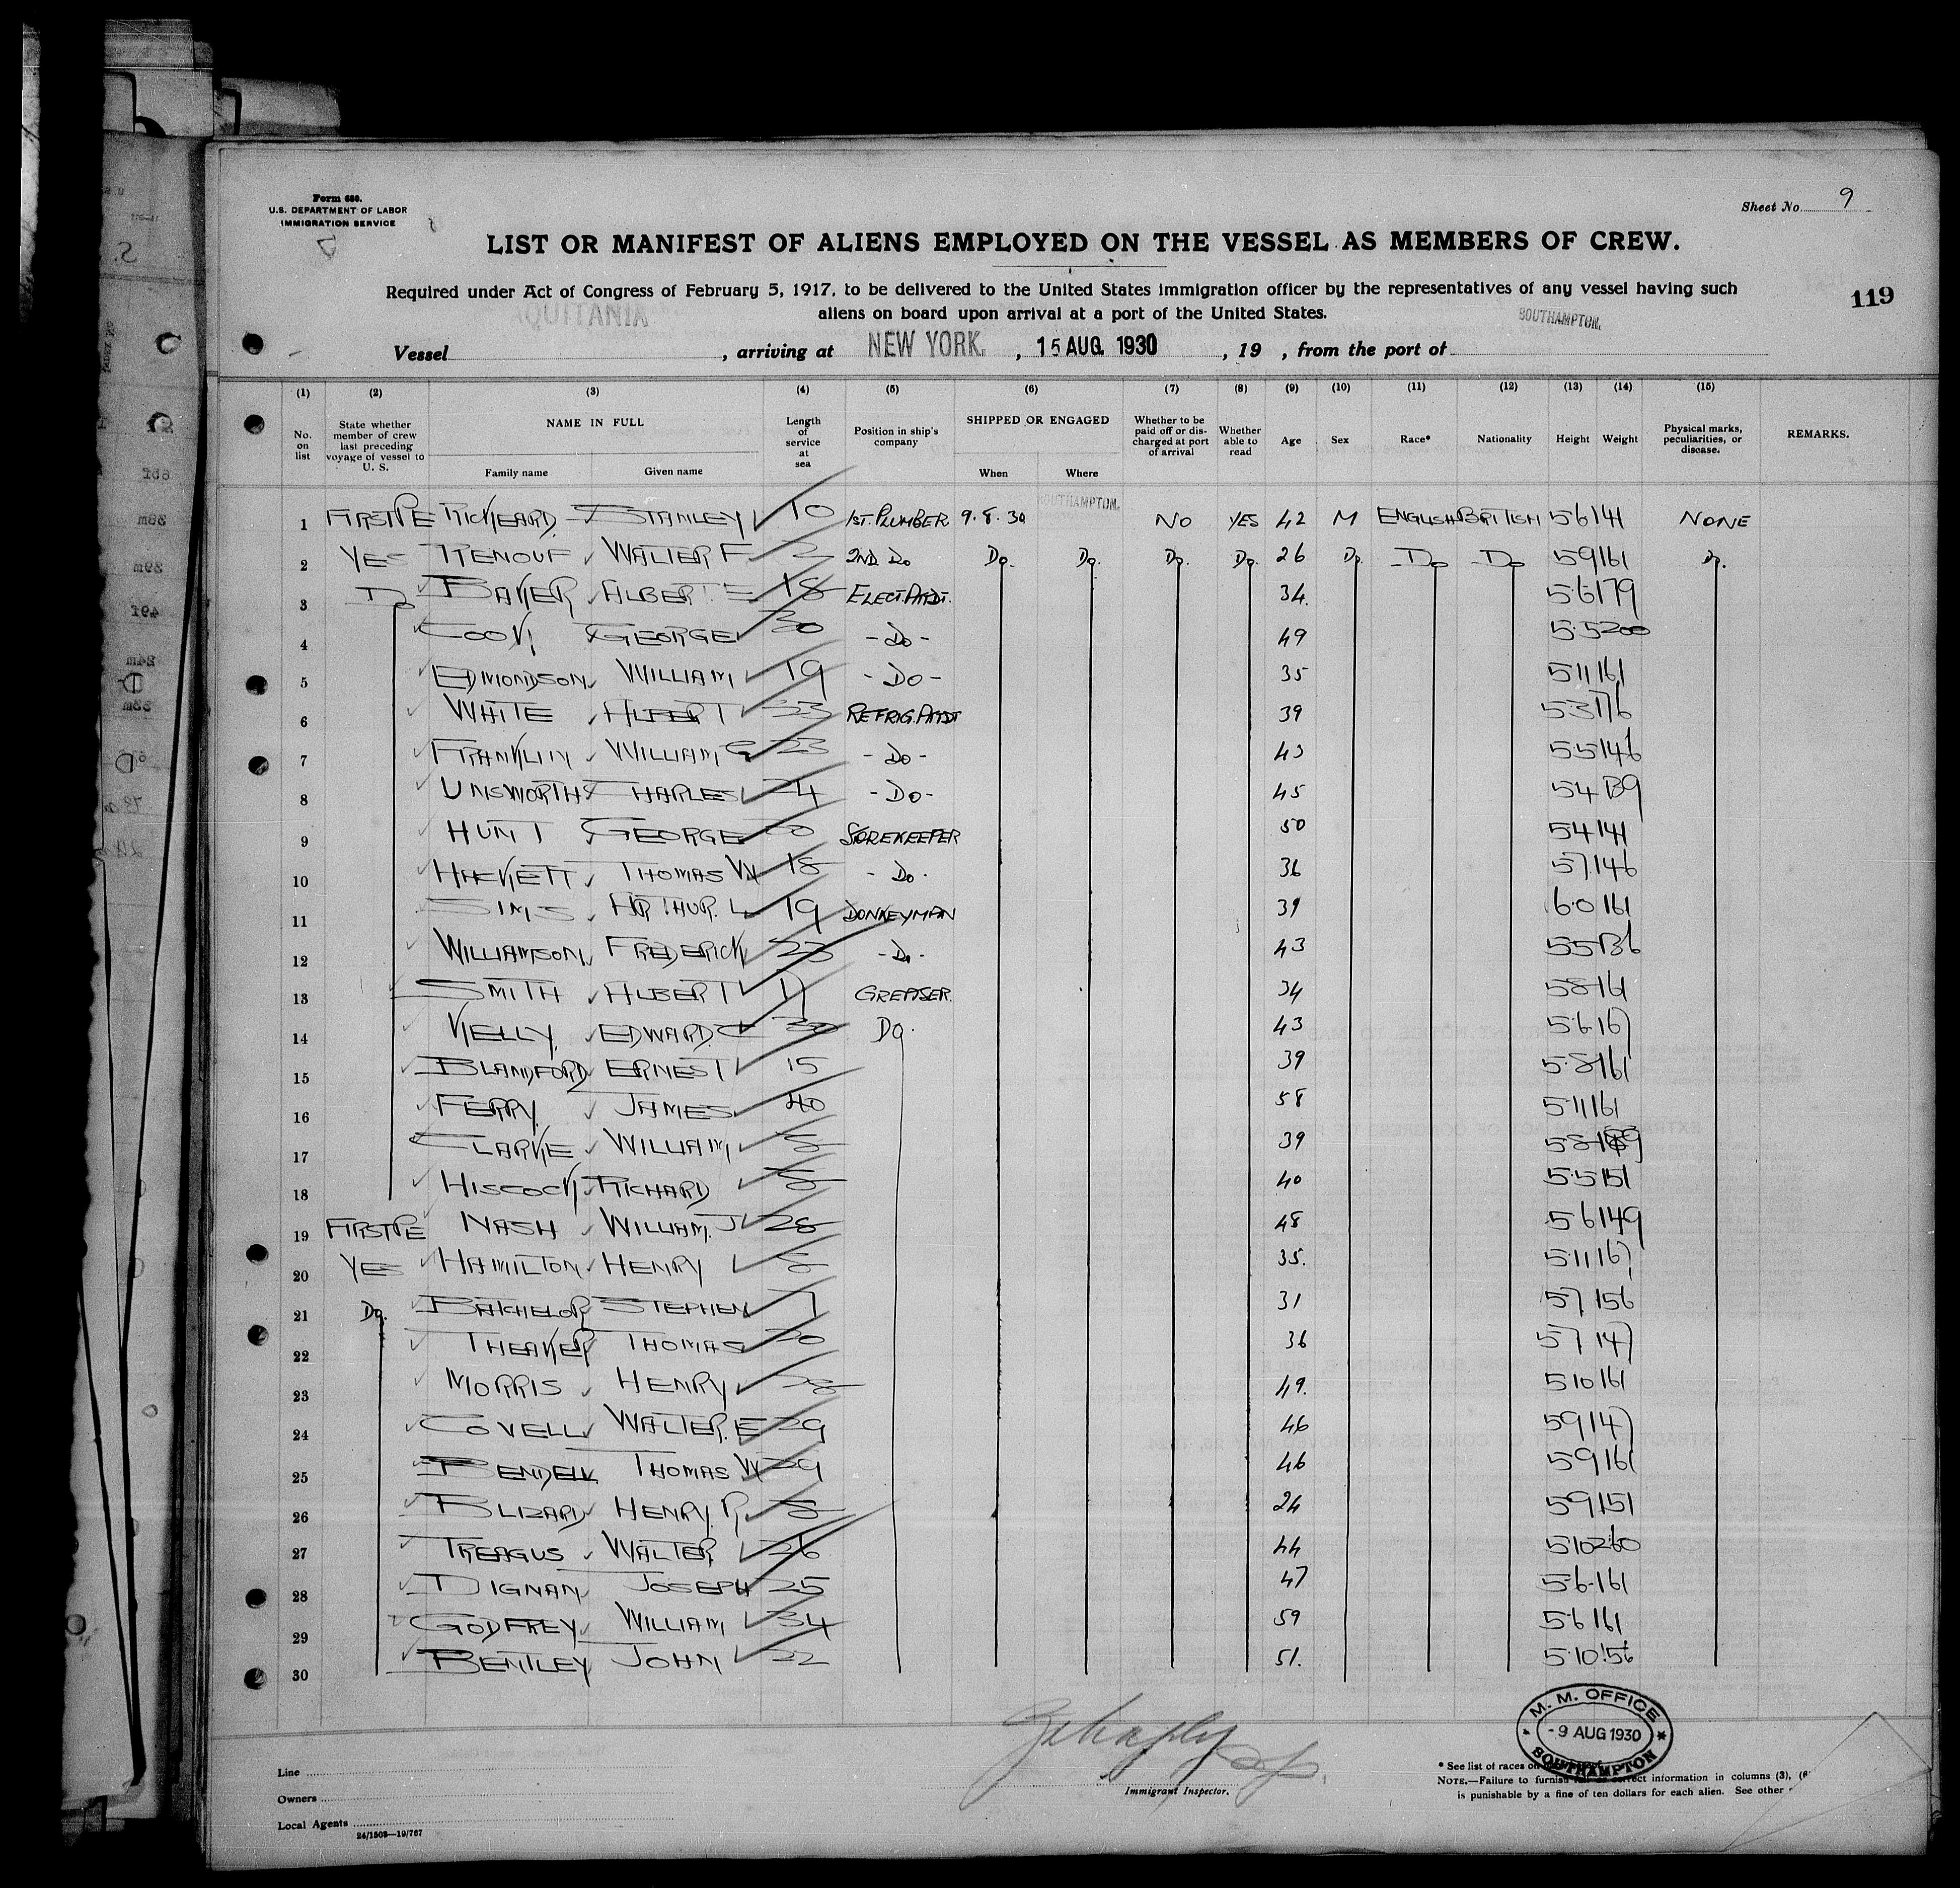 Form 680.
U.S. DEPARTMENT OF LABOR
IMMIGRATION SERVICE
Sheet No. 9
LIST OR MANIFEST OF ALIENS EMPLOYED ON THE VESSEL AS MEMBERS OF CREW.
Required under Act of Congress of February 5, 1917, to be delivered to the United States immigration officer by the representatives of any vessel having such
aliens on board upon arrival at a port of the United States.
119
Vessel AQUITANIA, arriving at NEW YORK., 15 AUG. 1930, 19 , from the port of SOUTHAMPTON.
(1) (2) (3) (4) (5) (6) (7) (8) (9) (10) (11) (12) (13) (14) (15)
No. on list State whether member of crew last preceding voyage of vessel to U. S. NAME IN FULL Family name Given name Length of service at sea Position in ship's company SHIPPED OR ENGAGED When Where Whether to be paid off or discharged at port of arrival Whether able to read Age Sex Race* Nationality Height Weight Physical marks, peculiarities, or disease. REMARKS.
1 RICKEARD STANLEY 10 1ST. PLUMBER 9.8.30 SOUTHAMPTON. NO YES 42 M ENGLISH BRITISH 5 6 141 NONE
2 YES RENOUF WALTER F 2ND. DO DO. DO. DO. DO. 26 DO DO DO 5 9 161 DO.
3 DO BAKER ALBERT E 18 ELECT. ATTDT. 34. 5.6 179
4 COOK GEORGE 30 - DO - 49 5.5 200
5 EDMONDSON WILLIAM 19 - DO - 35 5 11 161
6 WHITE ALBERT 23 REFRIG. ATTDT 39 5.3 176
7 FRANKLIN WILLIAM G 23 - DO - 43 5.5 146
8 UNSWORTH CHARLES 4 - DO - 45 5 4 139
9 HUNT GEORGE STOREKEEPER 50 5 4 141
10 HACKETT THOMAS W 18 - DO - 36 5 7 146
11 SIMS ARTHUR. L 19 DONKEYMAN 39 6.0 161
12 WILLIAMSON FREDERICK 23 - DO - 43 5 5 136
13 SMITH ALBERT 17 GREASER. 34 5 8 161
14 KELLY EDWARD. C DO. 43 5.6 167
15 BLANDFORD ERNEST 15 39 5.8 161
16 FERRY JAMES 40 58 5 11 161
17 CLARKE WILLIAM 8 39 5 8
18 HISCOCK RICHARD 8 40 5.5 151
19 NASH WILLIAM. J 28 48 5 6 149
20 YES HAMILTON HENRY 8 35. 5.11 167
21 DO. BATCHELOR STEPHEN 7 31 5 7 156
22 THEAKER THOMAS 20 36 5 7 147
23 MORRIS HENRY 28 49. 5 10 161
24 COVELL WALTER. E 29 46 5 9 147
25 BENDELL THOMAS W 29 46 5 9 161
26 BLIZARD HENRY. R 8 24 5 9 151
27 TREAGUS WALTER 26 44 5 10 260
28 DIGNAN JOSEPH 25 47 5.6.161
29 GODFREY WILLIAM 34 59 5.6 161
30 BENTLEY JOHN 22 51. 5.10 156
Line
Owners
Local Agents
24/1508—19/767
Immigrant Inspector.
M. M. OFFICE
- 9 AUG 1930
SOUTHAMPTON
* See list of races on
NOTE.—Failure to furnish correct information in columns (3), (6
is punishable by a fine of ten dollars for each alien. See other